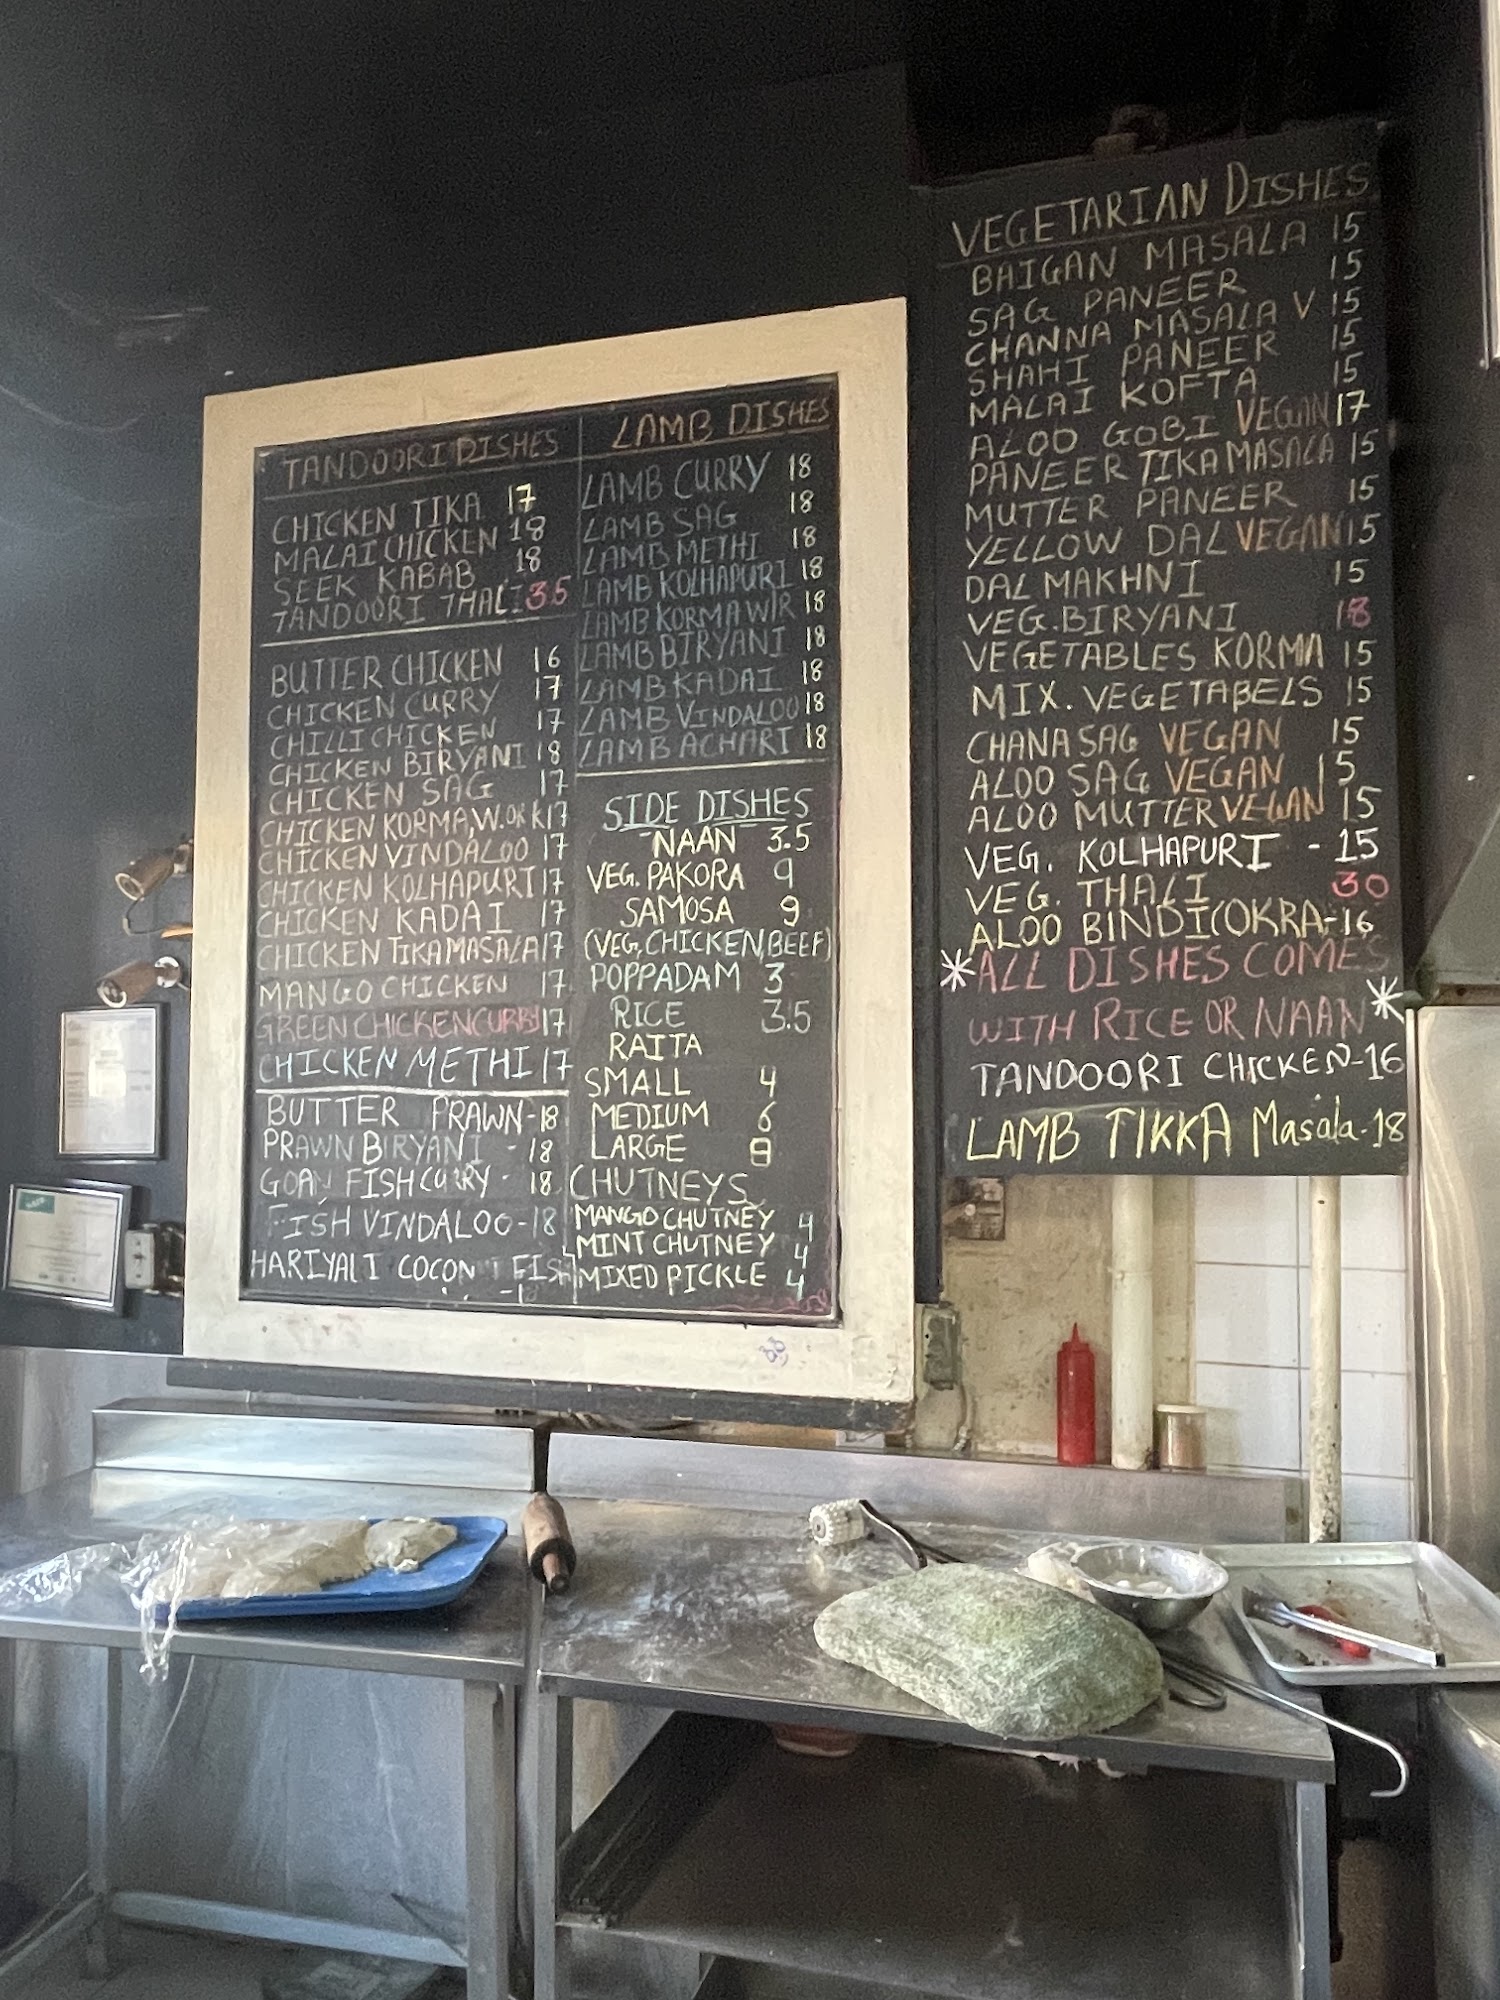 TANDOORI DISHES
CHICKEN TIKA 17
MALAI CHICKEN 18
SEEK KABAB 18
TANDOORI THALI 35
BUTTER CHICKEN 16
CHICKEN CURRY 17
CHILLI CHICKEN 17
CHICKEN BIRYANI 18
CHICKEN SAG 17
CHICKEN KORMA, W. OR K 17
CHICKEN VINDALOO 17
CHICKEN KOLHAPURI 17
CHICKEN KADAI 17
CHICKEN TIKA MASALA 17
MANGO CHICKEN 17
GREEN CHICKEN CURRY 17
CHICKEN METHI 17
BUTTER PRAWN-18
PRAWN BIRYANI -18
GOAN FISH CURRY - 18
FISH VINDALOO-18
HARIYALI COCONUT FISH
-18
LAMB DISHES
LAMB CURRY 18
LAMB SAG 18
LAMB METHI 18
LAMB KOLHAPURI 18
LAMB KORMA W/R 18
LAMB BIRYANI 18
LAMB KADAI 18
LAMB VINDALOO 18
LAMB ACHARI 18
SIDE DISHES
NAAN 3.5
VEG. PAKORA 9
SAMOSA 9
(VEG, CHICKEN, BEEF)
POPPADAM 3
RICE 3.5
RAITA
SMALL 4
MEDIUM 6
LARGE 8
CHUTNEYS
MANGO CHUTNEY 4
MINT CHUTNEY 4
MIXED PICKLE 4
VEGETARIAN DISHES
BAIGAN MASALA 15
SAG PANEER 15
CHANNA MASALA V 15
SHAHI PANEER 15
MALAI KOFTA 15
ALOO GOBI VEGAN 17
PANEER TIKA MASALA 15
MUTTER PANEER 15
YELLOW DAL VEGAN 15
DAL MAKHNI 15
VEG. BIRYANI 18
VEGETABLES KORMA 15
MIX. VEGETABELS 15
CHANA SAG VEGAN 15
ALOO SAG VEGAN 15
ALOO MUTTER VEGAN 15
VEG. KOLHAPURI - 15
VEG. THALI 30
ALOO BINDI(OKRA-16
*ALL DISHES COMES
WITH RICE OR NAAN*
TANDOORI CHICKEN-16
LAMB TIKKA Masala-18